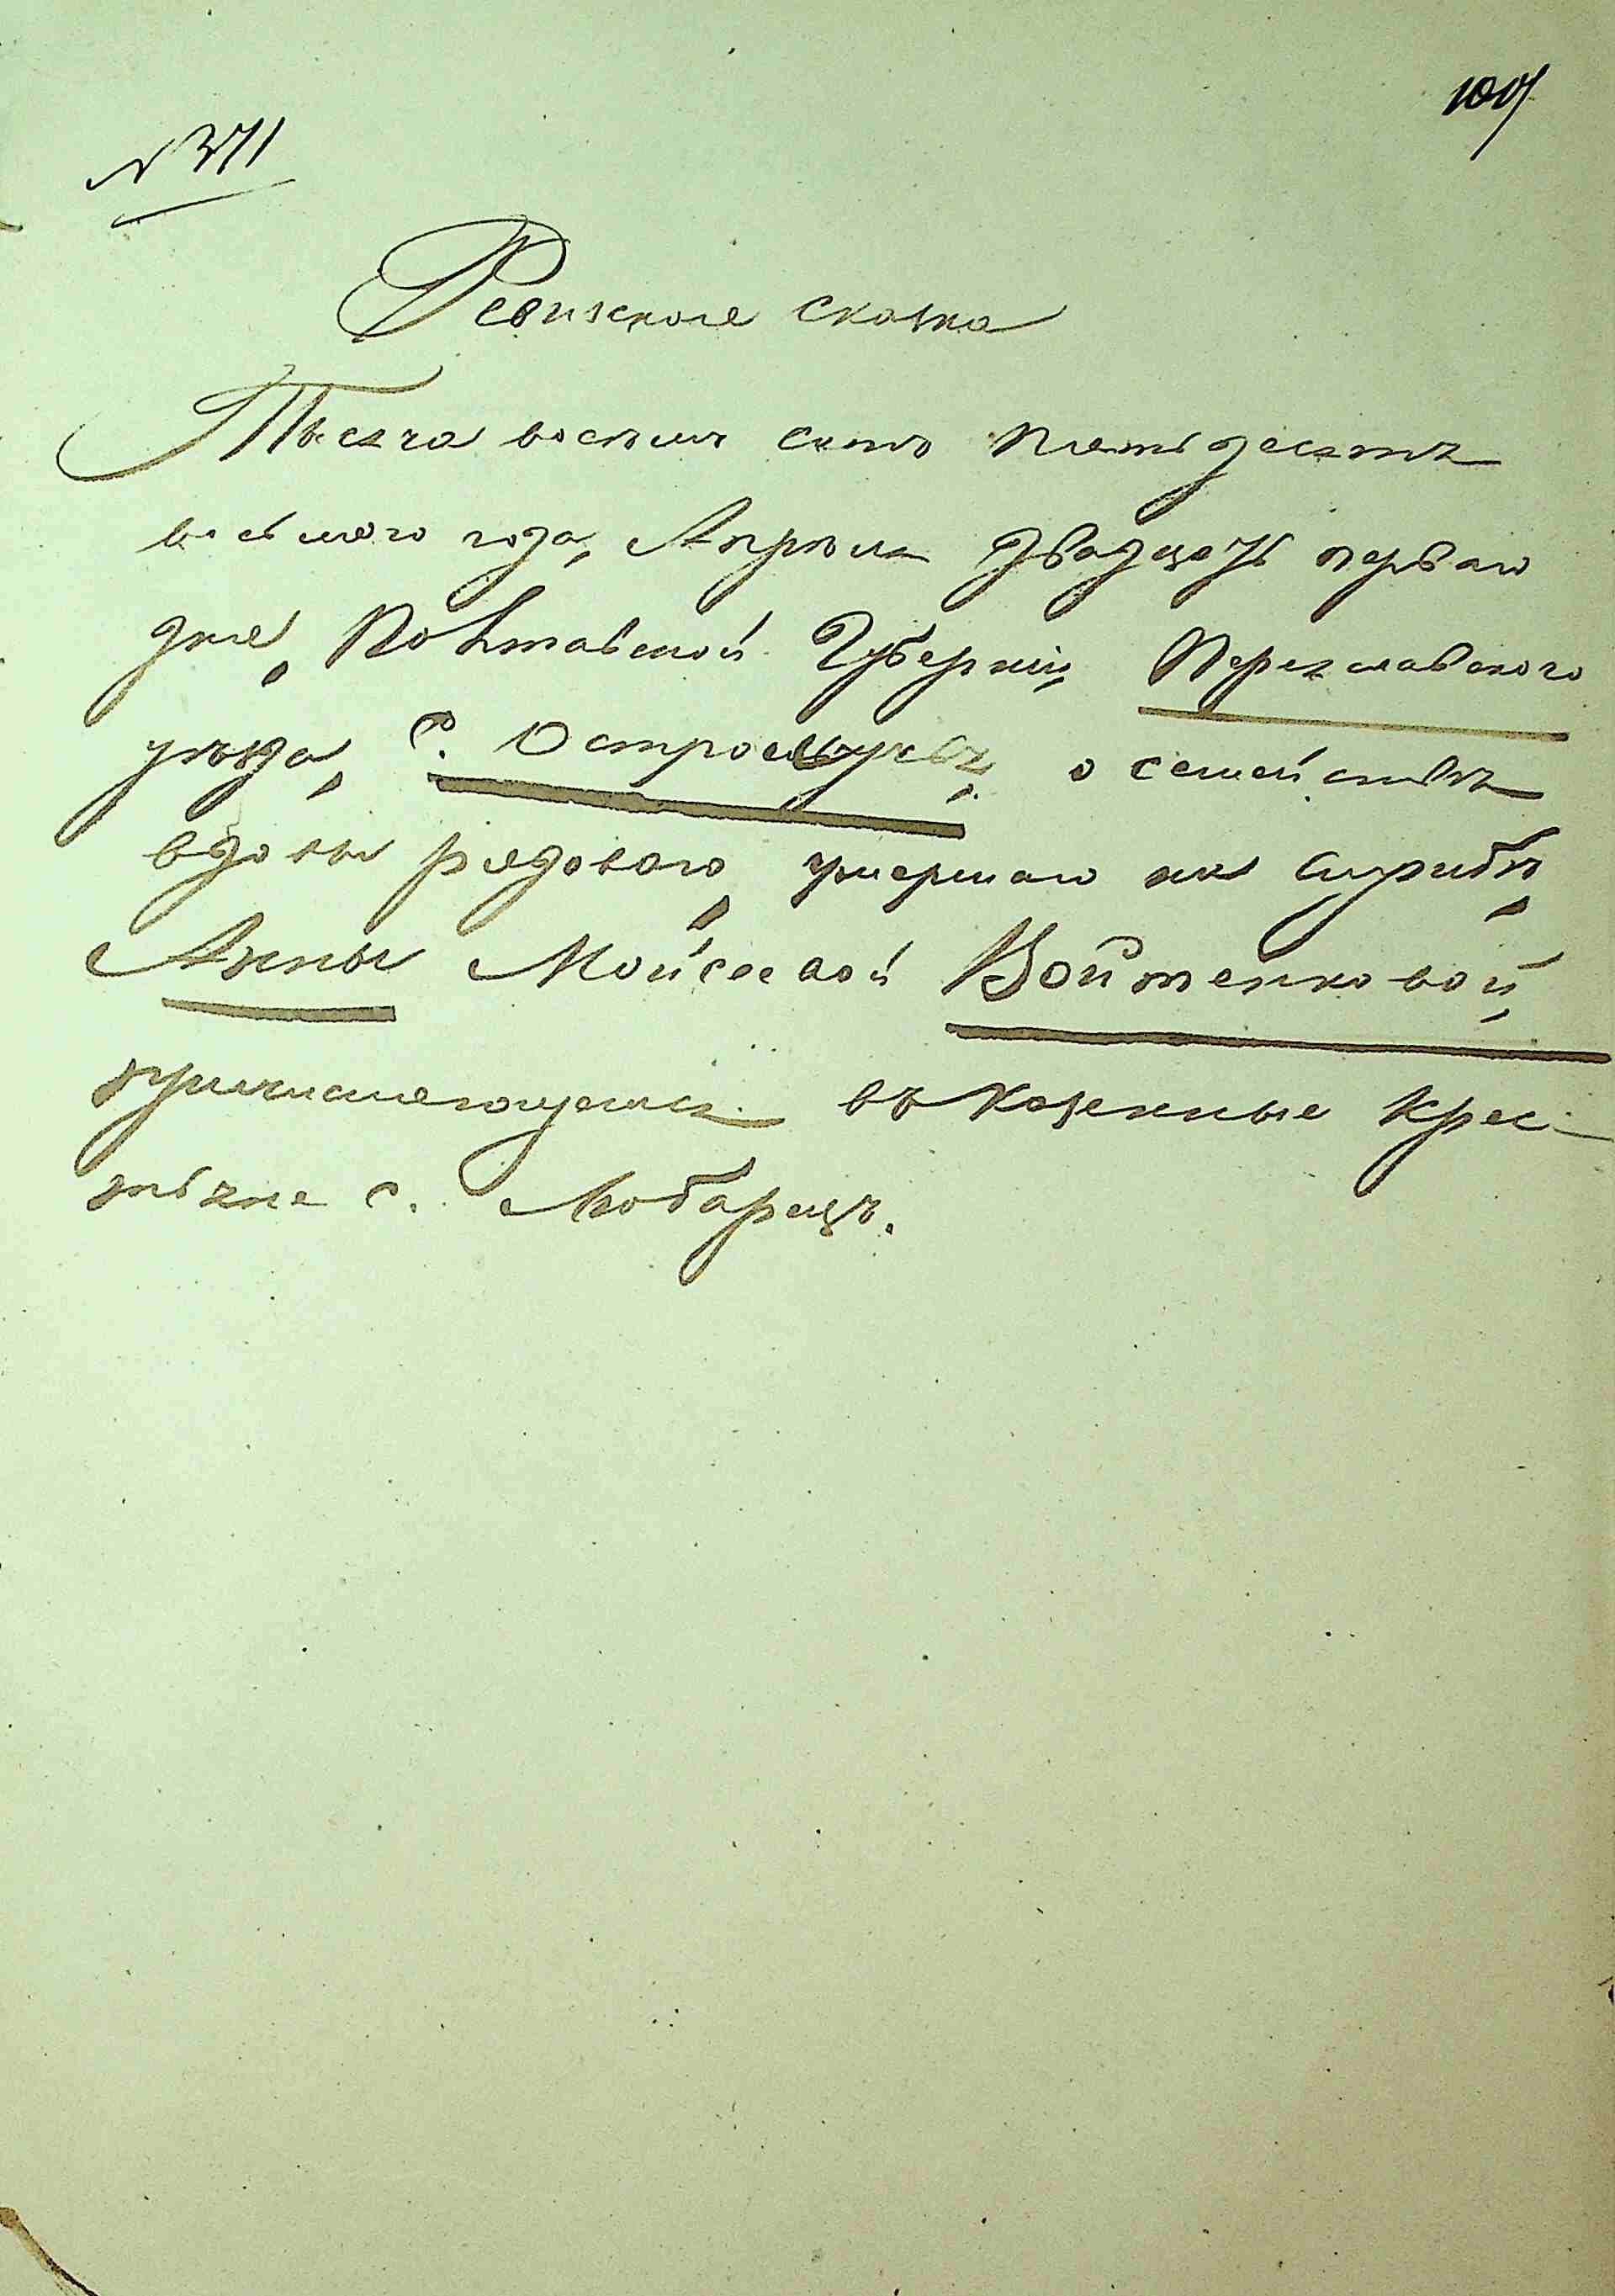 100
№ 371
Ревизская сказка
Тысяча восемь сотъ пятьдесятъ
восьмого года, Апрѣля двадцать перваго
дня, Полтавской Губерніи, Переяславского
уѣзда, С. Остролучья, о семействѣ
вдовы рядового, умершаго на службѣ,
Анны Мойсеевой Войтенковой,
причисляющемся въ казенные крес-
тьяне с. Любарецъ.